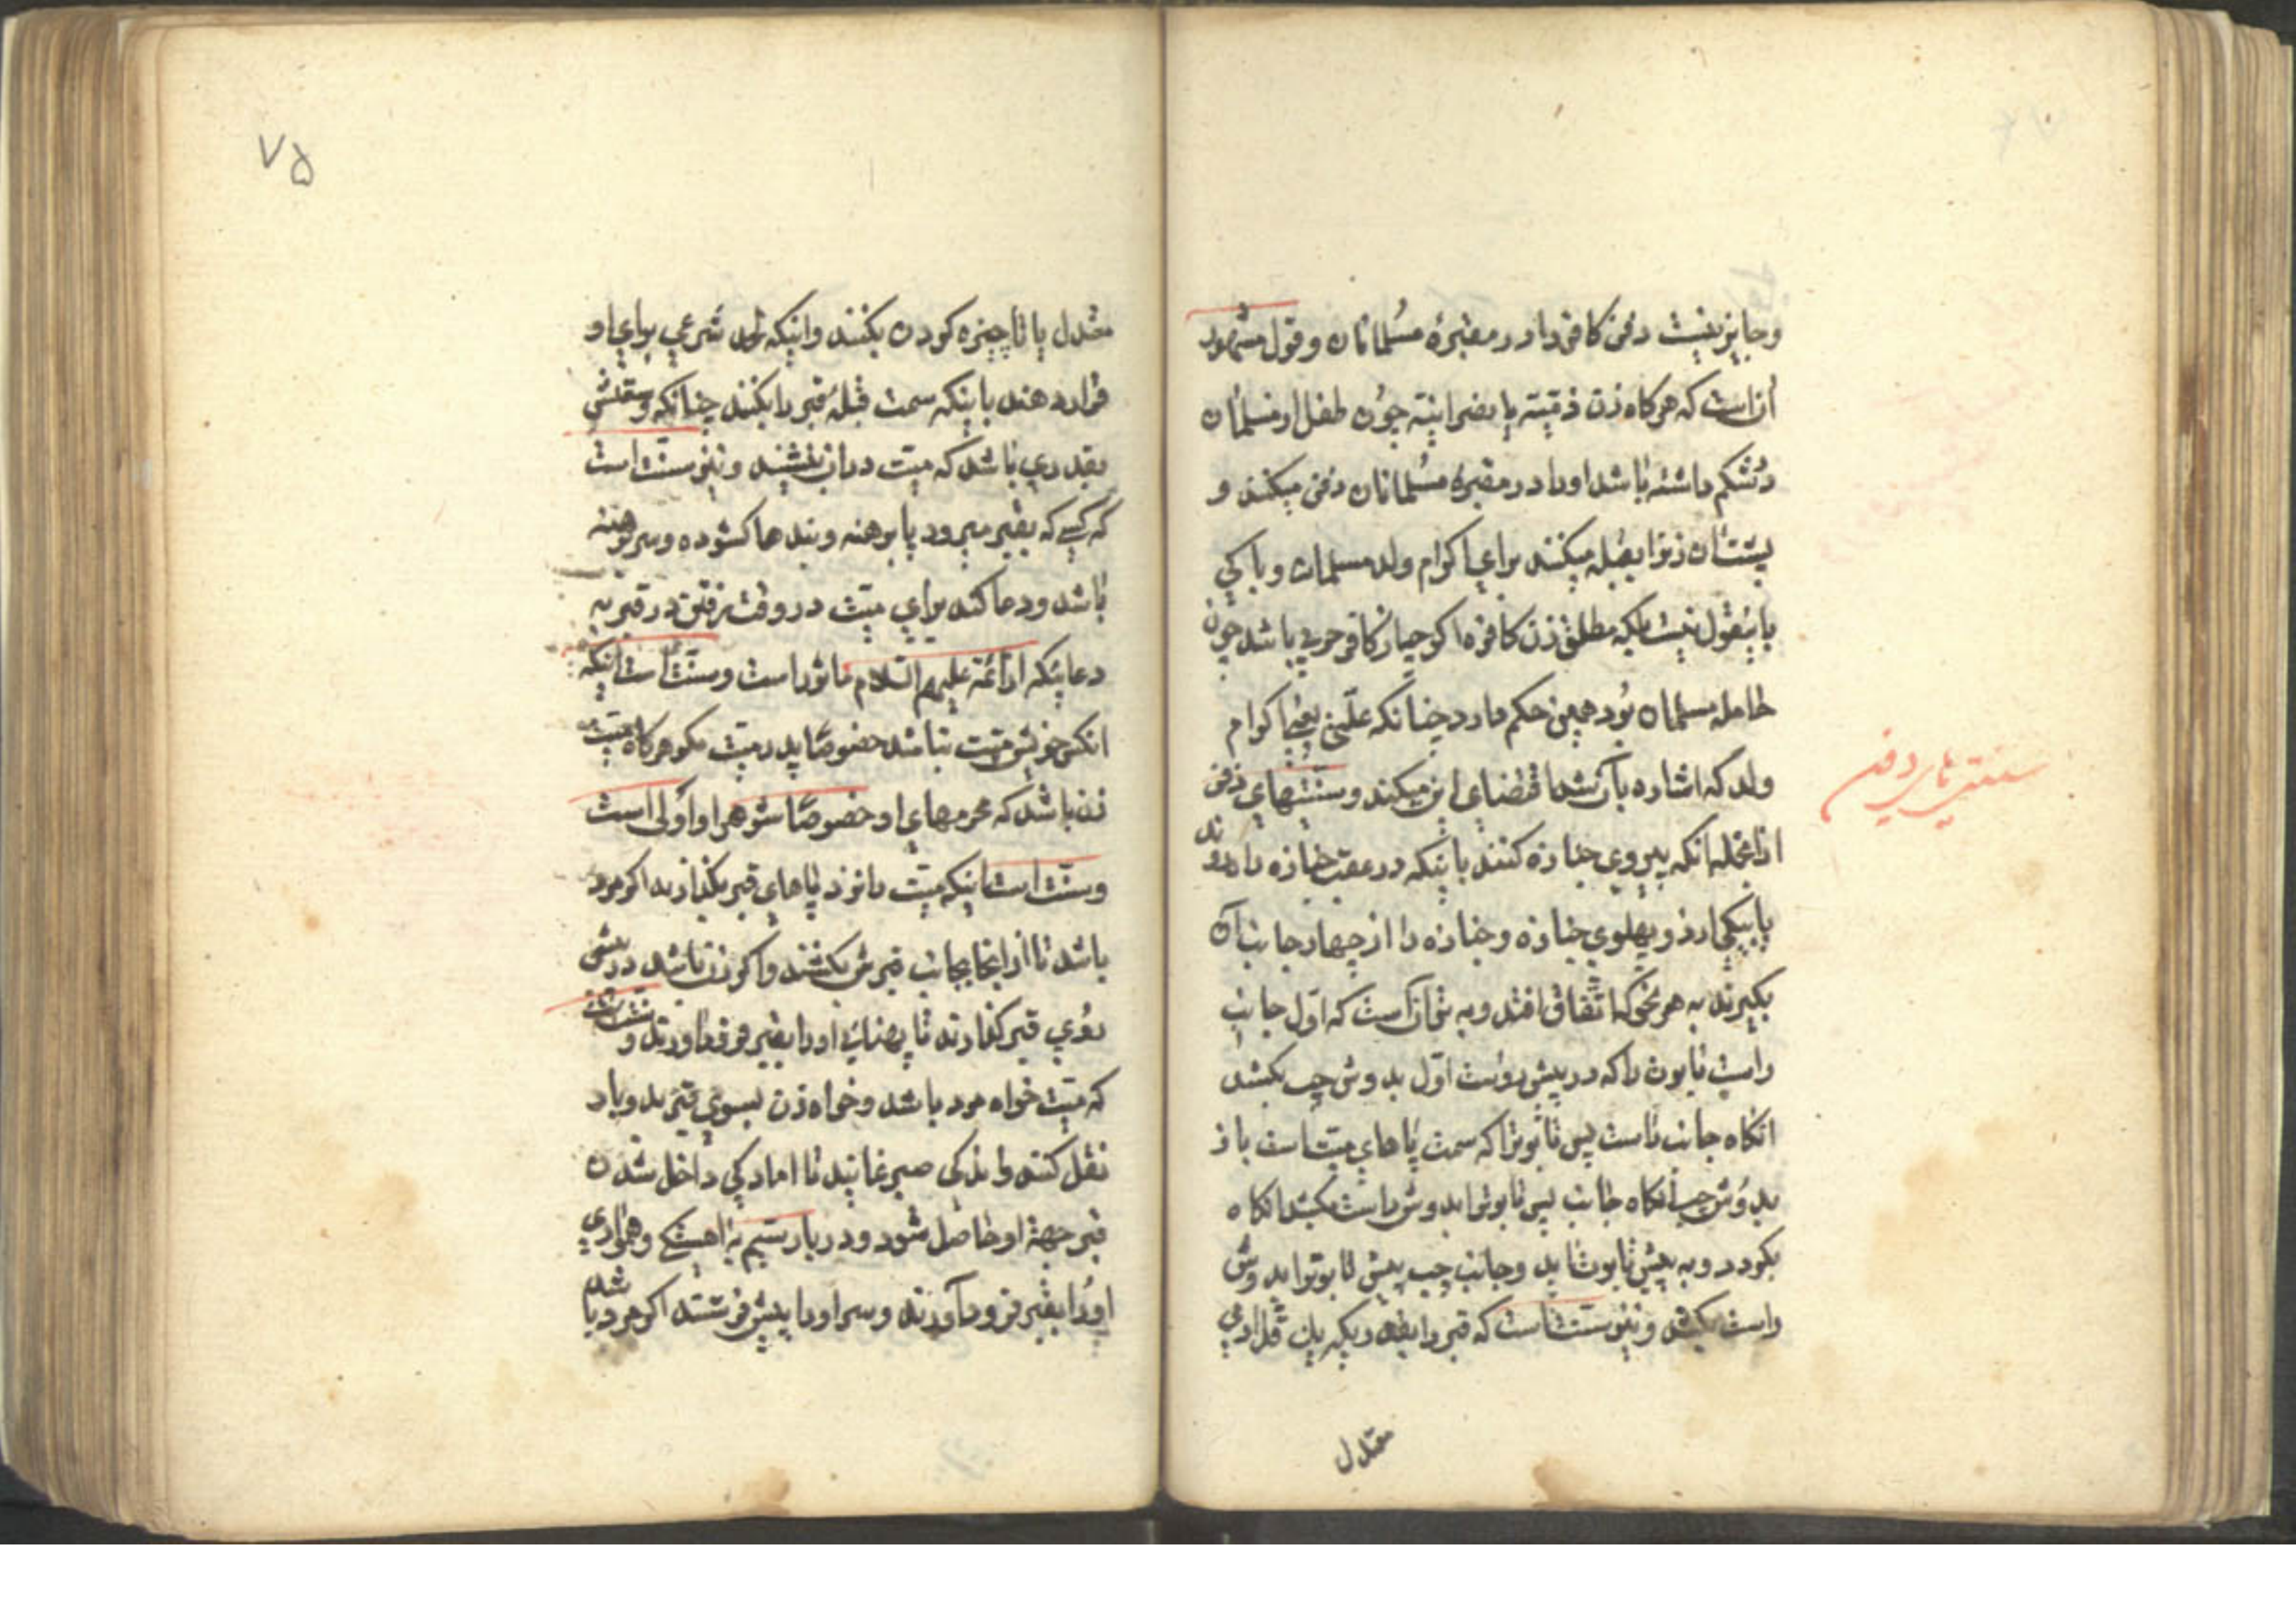 وجایز نیست دفن کافر را در مقبرهٔ مسلمانان و قول مشهور
آن است که هرکاه زن ذمیّه یا نصرانیّه چون طفل از مسلمان
در شکم داشته باشد او را در مقبرهٔ مسلمانان دفن میکنند و
پشت ان زنرا بقبله میکنند برای اکرام ولد مسلمان و باکی
باینقول نیست بلکه مطلق زن کافره اکرچه از کافر حربی باشد چون
حامله مسلمان بود همین حکم دارد چنانکه علّت یعنی اکرام
ولد که اشاره بآن شد اقتضای این میکند و سنّتهای دفن
سنتی های دفن
ازانجمله انکه پیروی جنازه کنند باینکه در عقب جنازه راه روند
یا بیکی از دو پهلوی جنازه و جنازه را از چهار جانب آن
بکیرند به هر نحو که اتّفاق افتد و بهتر آن است که اوّل جانب
راست تابوت را که در پیش روست اوّل بدوش چپ بکشد
انکاه جانب راست پس تابوترا که سمت پاهای میّت است باز
بدوش چپ انکاه جانب پس تابوترا بدوش راست بکشد انکاه
بکردد و به پیش تابوت اید و جانب چپ پیش تابوترا بدوش
راست بکشد و نیز سنّت است که قبر را بقدر یکه یک قد ادمی
معتدل
۷۵
معتدل یا تا چنبره کردن بکنند و اینکه لحد شرعی برای او
قرار دهند باینکه سمت قبلهٔ قبر را بکنند چنانکه وسعتش
بقدری باشد که میّت در ان بنشیند و نیز سنّت است
که کسی که بقبر میرود پا برهنه و بندها کشوده و سر برهنه
باشد و دعا کند برای میّت در وقت رفتن در قبر به
دعائیکه از ائمّه علیهم السّلام ماثور است و سنّت است اینکه
انکس خویش میّت نباشد خصوصًا پدر میّت مکر هرکاه میّت
زن باشد که محرمهای او خصوصًا شوهر او اولی است
و سنّت است اینکه میّت را نزد پاهای قبر بکذارند اکر مرد
باشد تا از انجا بجانب قبرش بکشند و اکر زن باشد در پیش
روی قبر کذارند تا پهنائی او را بقبر فرود اورند و سنّت است
که میّت خواه مرد باشد و خواه زن بسوی قبر بدو بار
نقل کنند و اندکی صبر نمایند تا امادکی داخل شدن
قبر جهة او حاصل شود و در بار سیّم به اهستکی و همواری
او را بقبر فرود آورند و سر او را پیش فرستند اکر مرد باشد